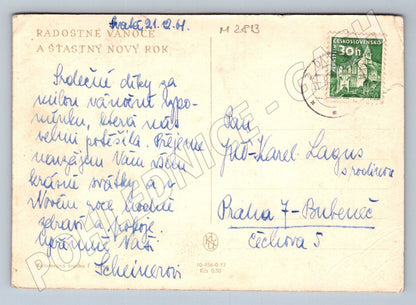 Praha 21.12.61.
M 2813
RADOSTNÉ VÁNOCE
A ŠŤASTNÝ NOVÝ ROK
ČESKOSLOVENSKO
30h
Srdečné díky za
milou vánoční vzpo-
mínku, která nás
velmi potěšila. Přejeme
navzájem Vám všem
krásné svátky a v
Novém roce hodně
zdraví a pokoje.
Upřímně Vaši
Scheinerovi
Pan
JUDr Karel Lagus
s rodinou
Praha 7-Bubeneč
Čechova 5
Kčs 0,50
POHLEDNICE - CA